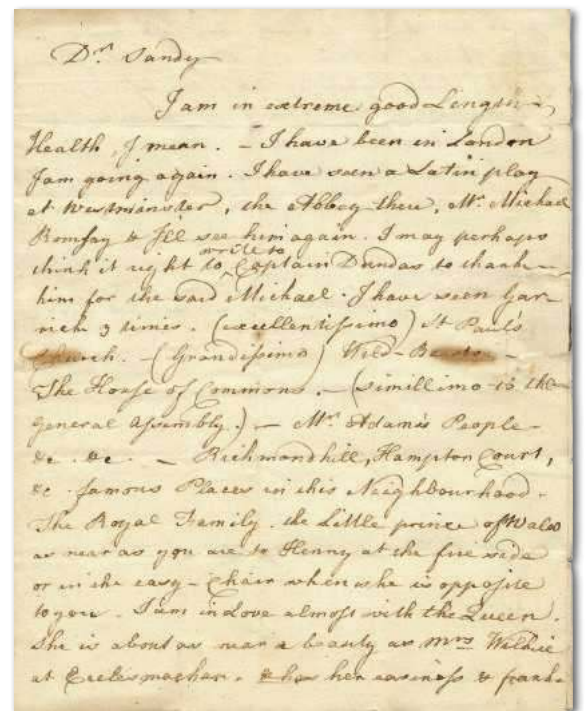 Dr. Sandy
I am in extreme good
Health, I mean. - I have been in London
I am going again. I have seen a Latin play
at Westminster, the Abbey there, Mr. Michael
Ramsay & I'll see him again. I may perhaps
write to
think it right to ‸ Captain Dundas to thank
him for the said Michael. I have seen Gar-
rick 3 times. (excellentissimo) St Paul's
Church. - (Grandissimo) Wild-Beasts -
The House of Commons. - (simillimo to the
General Assembly.) - Mr. Adam's People -
&c. &c. - Richmond hill, Hampton Court,
&c. famous Places in this Neighbourhood.
The Royal Family. the Little prince of Wales
as near as you are to Henny at the fire side
or in the easy-Chair when she is opposite
to you. I am in Love almost with the Queen.
She is about as near a beauty as Mrs Wilkie
at Ecclesmachan. & has her easiness & frank-